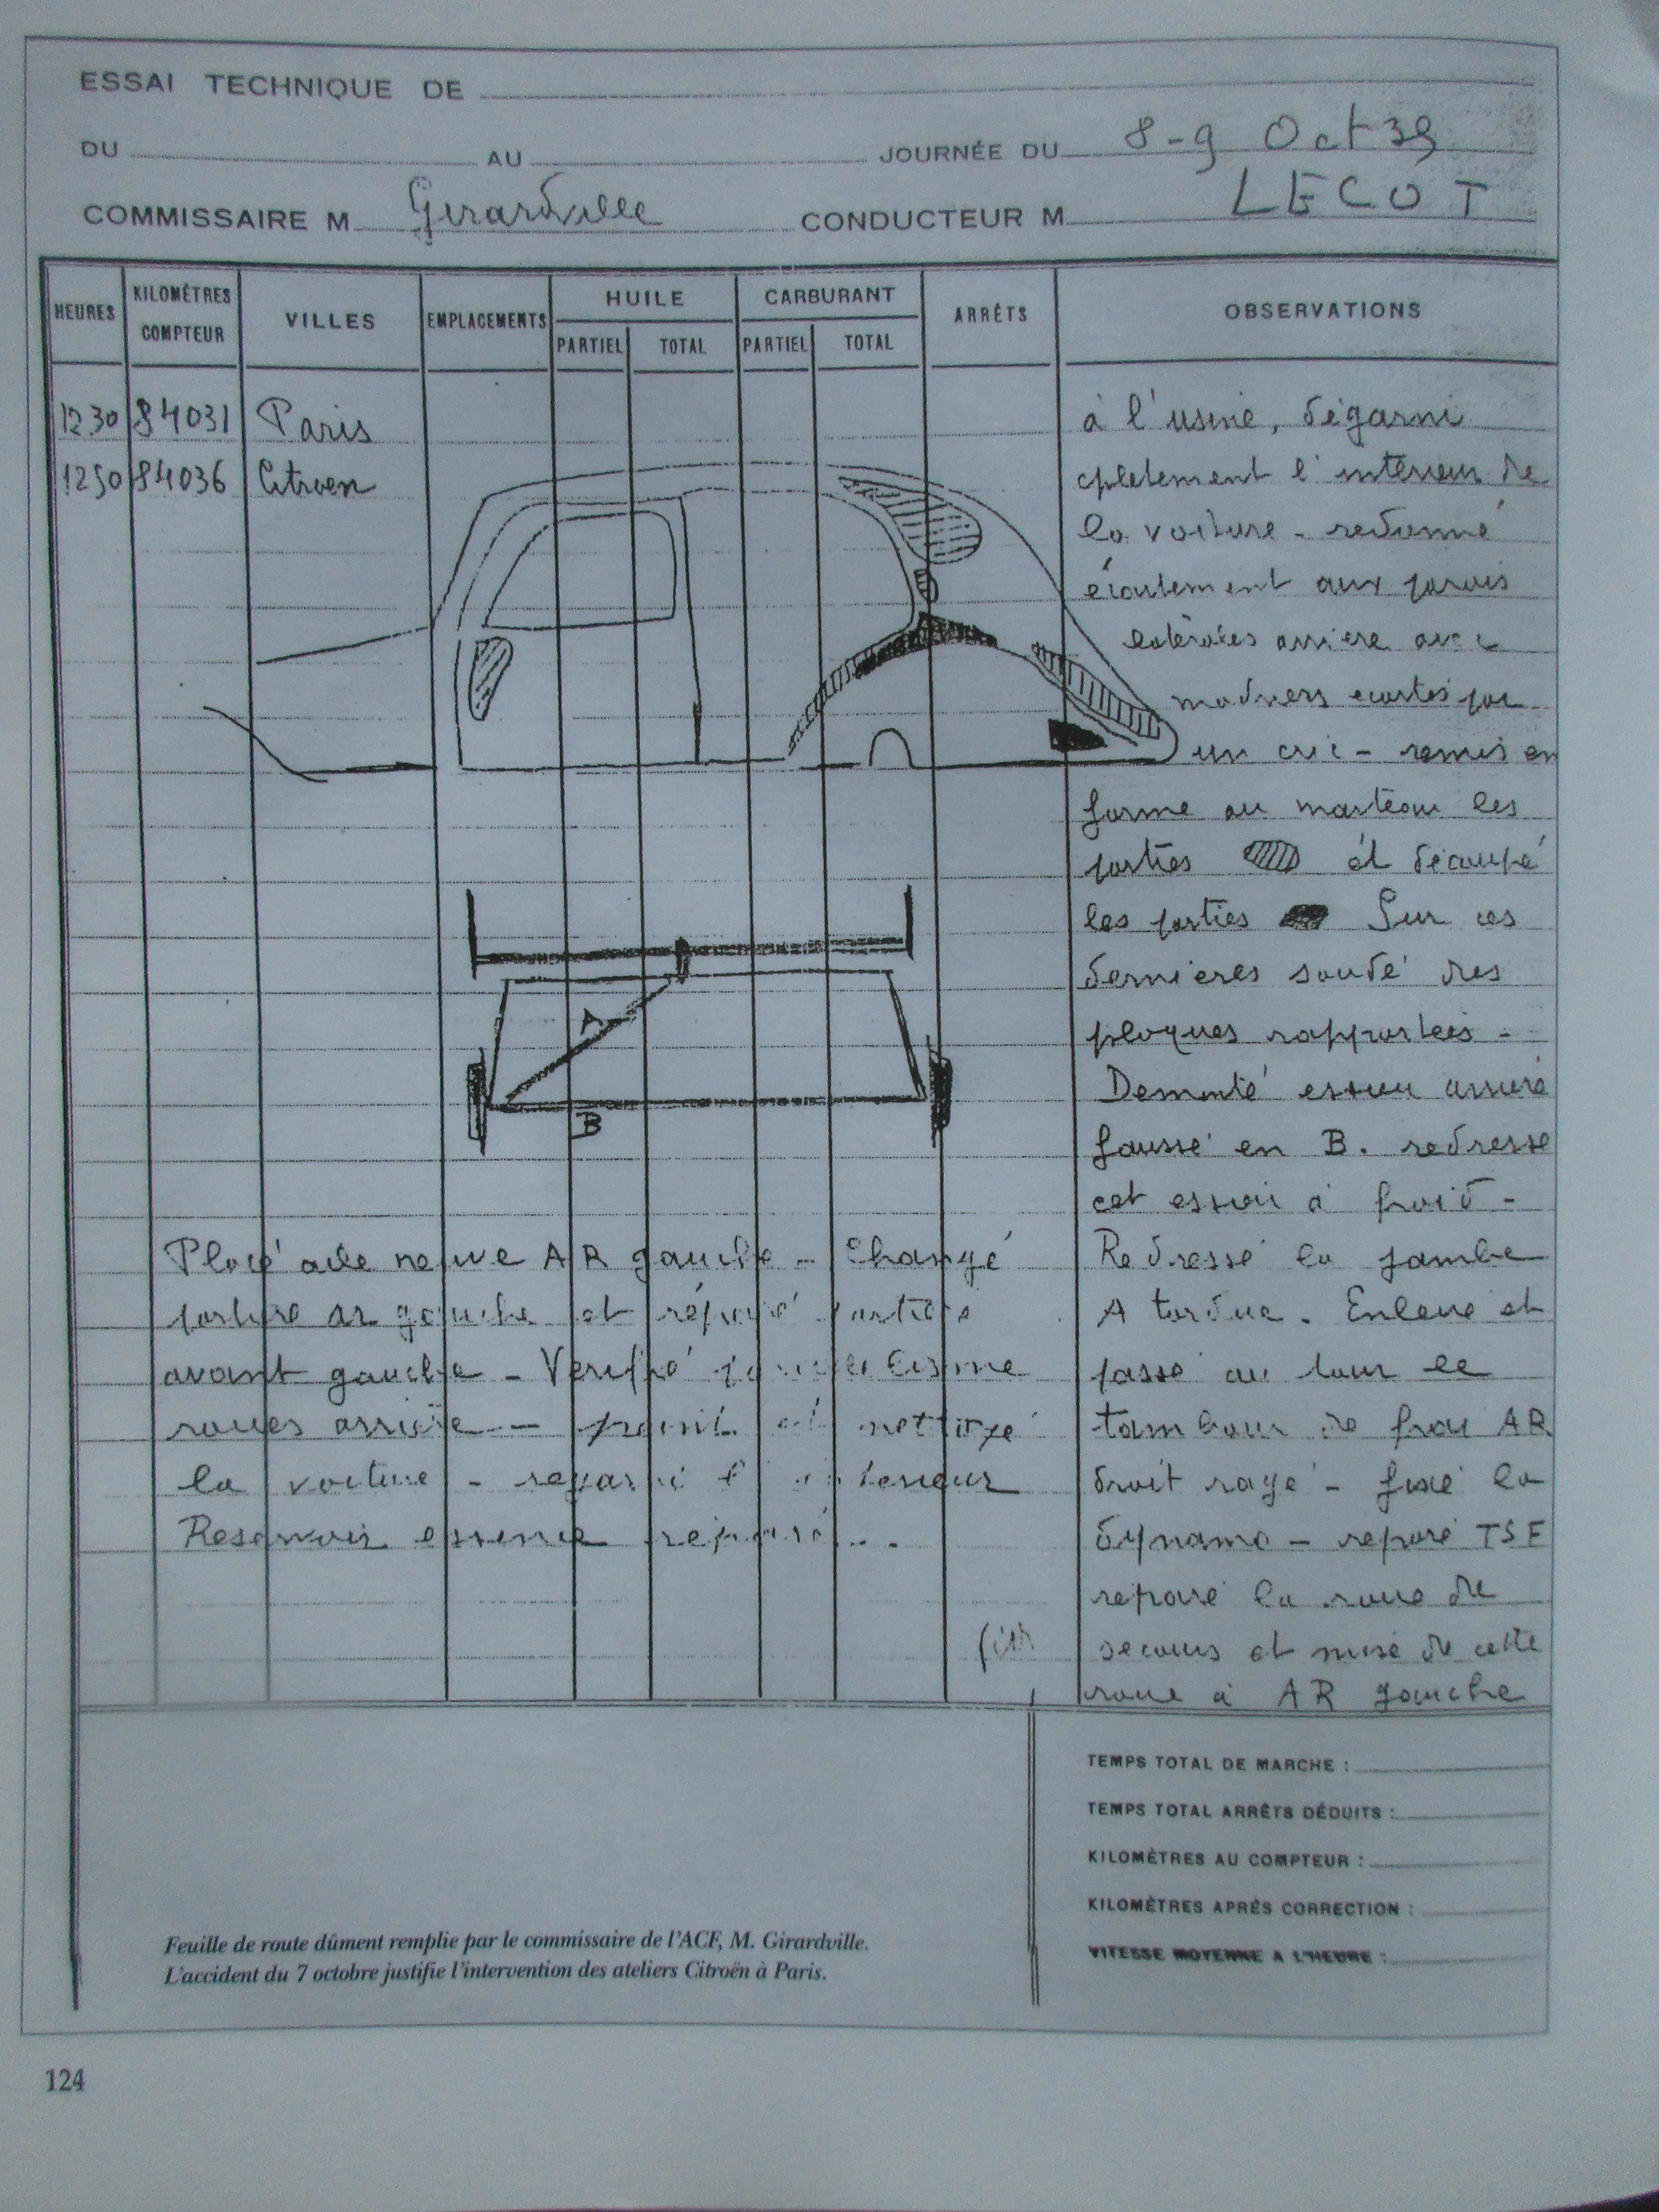 ESSAI TECHNIQUE DE
DU AU JOURNÉE DU 8-9 Oct 35
COMMISSAIRE M Girardville CONDUCTEUR M LECOT
HEURES KILOMÈTRES COMPTEUR VILLES EMPLACEMENTS HUILE CARBURANT ARRÊTS OBSERVATIONS
PARTIEL TOTAL PARTIEL TOTAL
12.30 84031 Paris
1250 84036 Citroen
à l'usine, dégarni
cpletement l'interieur de
la voiture - redonné
écartement aux parois
latérales arriere avec
madriers ecartés par
un cric - remis en
forme au marteau les
parties et découpé
les parties Sur ces
dernieres soudé des
plaques rapportées -
Demonté essieu arriere
faussé en B. redressé
cet essieu à froid -
Redressé la jambe
A tordue. Enlevé et
passé au tour le
tambour de frein AR
droit rayé - fixé la
dynamo - réparé TSF
réparé la roue de
secours et mise de cette
roue à AR gauche
A
B
Placé aile neuve AR gauche - Changé
portiere ar gauche et réparé portiere
avant gauche - Verifié parallelisme
roues arriere - peint et nettoyé
la voiture - regarni l'interieur
Reservoir essence réparé..
TEMPS TOTAL DE MARCHE :
TEMPS TOTAL ARRÊTS DÉDUITS :
KILOMÈTRES AU COMPTEUR :
KILOMÈTRES APRÈS CORRECTION :
VITESSE MOYENNE A L'HEURE :
Feuille de route dûment remplie par le commissaire de l'ACF, M. Girardville.
L'accident du 7 octobre justifie l'intervention des ateliers Citroën à Paris.
124